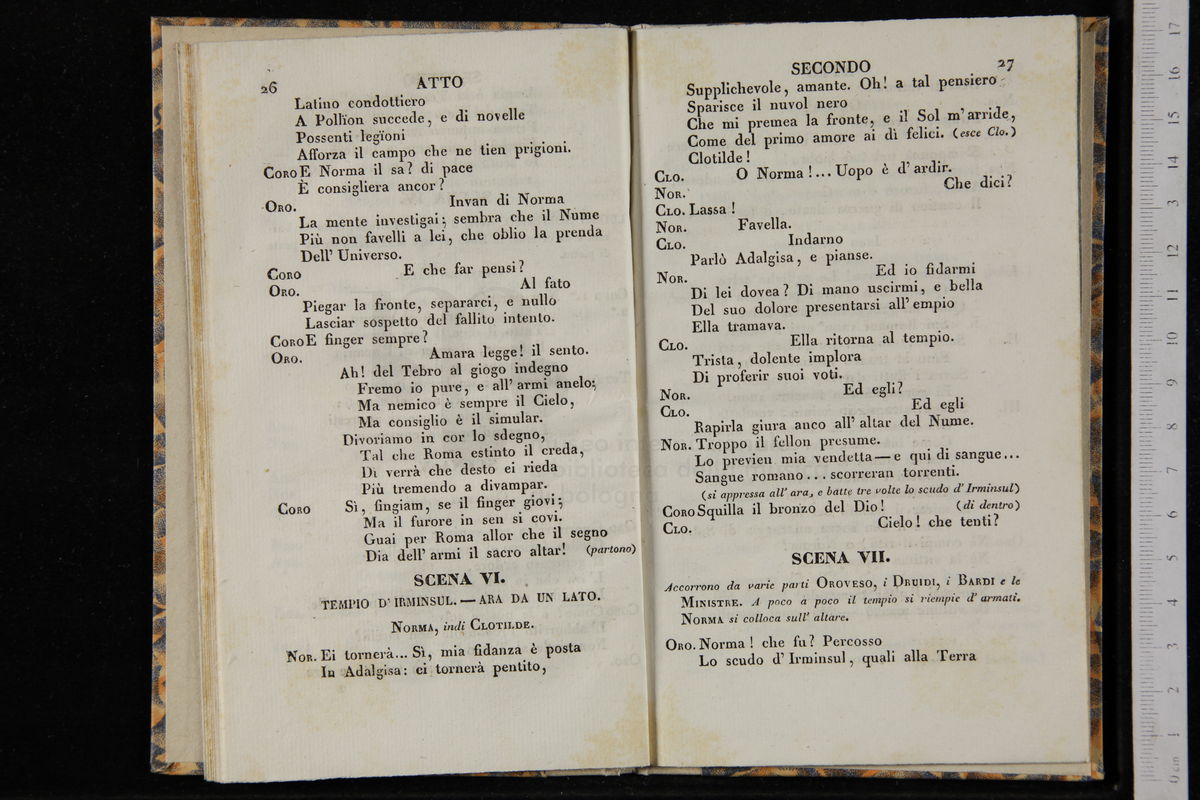 26 ATTO
Latino condottiero
A Pollïon succede, e di novelle
Possenti legïoni
Afforza il campo che ne tien prigioni.
CORO E Norma il sa? di pace
È consigliera ancor?
ORO. Invan di Norma
La mente investigai; sembra che il Nume
Più non favelli a lei, che oblio la prenda
Dell' Universo.
CORO E che far pensi?
ORO. Al fato
Piegar la fronte, separarci, e nullo
Lasciar sospetto del fallito intento.
CORO E finger sempre?
ORO. Amara legge! il sento.
Ah! del Tebro al giogo indegno
Fremo io pure, e all' armi anelo;
Ma nemico è sempre il Cielo,
Ma consiglio è il simular.
Divoriamo in cor lo sdegno,
Tal che Roma estinto il creda,
Dì verrà che desto ei rieda
Più tremendo a divampar.
CORO Sì, fingiam, se il finger giovi;
Ma il furore in sen si covi.
Guai per Roma allor che il segno
Dia dell' armi il sacro altar! (partono)
SCENA VI.
TEMPIO D' IRMINSUL. — ARA DA UN LATO.
NORMA, indi CLOTILDE.
NOR. Ei tornerà... Sì, mia fidanza è posta
In Adalgisa: ei tornerà pentito,
SECONDO 27
Supplichevole, amante. Oh! a tal pensiero
Sparisce il nuvol nero
Che mi premea la fronte, e il Sol m' arride,
Come del primo amore ai dì felici. (esce Clo.)
Clotilde!
CLO. O Norma!... Uopo è d' ardir.
NOR. Che dici?
CLO. Lassa!
NOR. Favella.
CLO. Indarno
Parlò Adalgisa, e pianse.
NOR. Ed io fidarmi
Di lei dovea? Di mano uscirmi, e bella
Del suo dolore presentarsi all' empio
Ella tramava.
CLO. Ella ritorna al tempio.
Trista, dolente implora
Di proferir suoi voti.
NOR. Ed egli?
CLO. Ed egli
Rapirla giura anco all' altar del Nume.
NOR. Troppo il fellon presume.
Lo previen mia vendetta — e qui di sangue...
Sangue romano... scorreran torrenti.
(si appressa all' ara, e batte tre volte lo scudo d' Irminsul)
CORO Squilla il bronzo del Dio! (di dentro)
CLO. Cielo! che tenti?
SCENA VII.
Accorrono da varie parti OROVESO, i DRUIDI, i BARDI e le
MINISTRE. A poco a poco il tempio si riempie d' armati.
NORMA si colloca sull' altare.
ORO. Norma! che fu? Percosso
Lo scudo d' Irminsul, quali alla Terra
0 cm 1 2 3 4 5 6 7 8 9 10 11 12 13 14 15 16 17